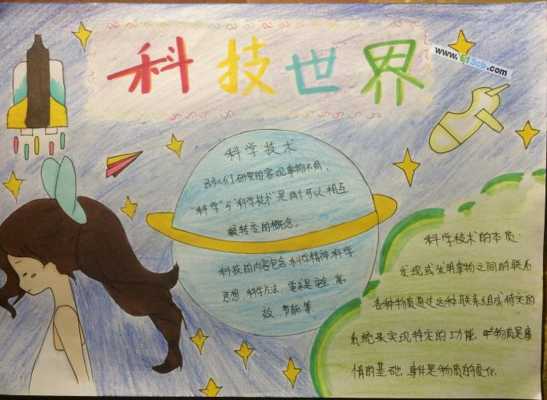 科技世界
www.                .com
科学技术
研究的客观事物不同，
“科学”与“科学技术”是两个可以相互
转变的概念。
科技的内容包含 科学精神 科学
思想 科学方法
效、节能等
科学技术的本质：
发现或发明事物之间的联系
各种物质通过这种联系组成特定的
系统来实现特定的功能。
的基础 事件是物质的变化